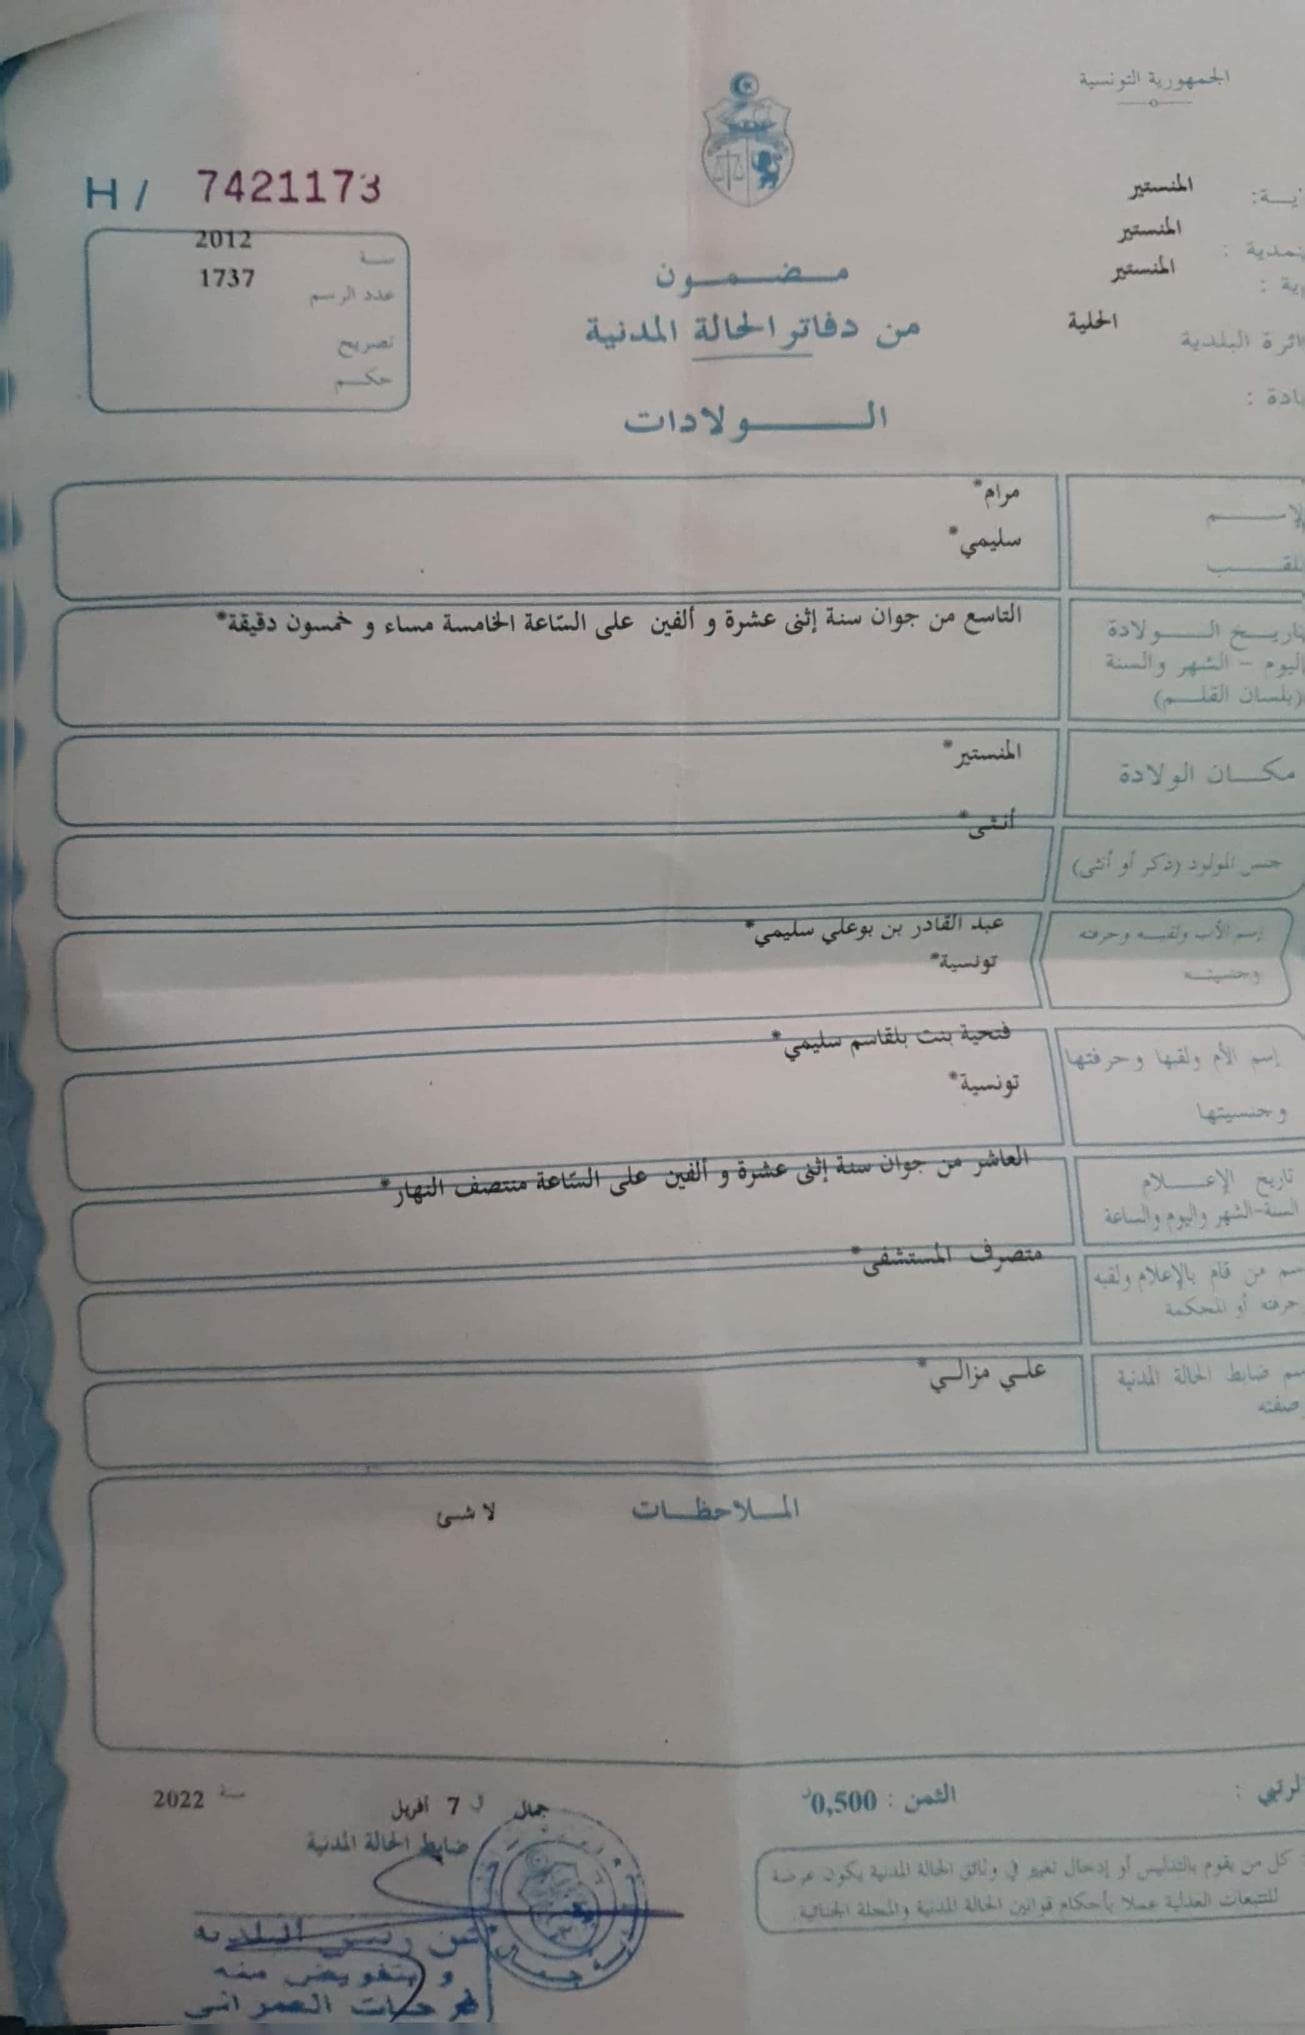 الجمهورية التونسية
المنستير
المنستير
المنستير
الحلية
H / 7421173
2012
سنة
1737
عدد الرسم
تصريح
حكم
مضمون
من دفاتر الحالة المدنية
الولادات
الإسم
مرام*
سليمي*
تاريخ الولادة
اليوم - الشهر والسنة
(بلسان القلم)
التاسع من جوان سنة إثنى عشرة و ألفين على السّاعة الخامسة مساء و خمسون دقيقة*
مكان الولادة
المنستير*
جنس المولود (ذكر أو أنثى)
أنثى*
إسم الأب ولقبه وحرفته
وجنسيته
عبد القادر بن بوعلي سليمي*
تونسية*
إسم الأم ولقبها وحرفتها
وجنسيتها
فتحية بنت بلقاسم سليمي*
تونسية*
تاريخ الإعلام
السنة-الشهر واليوم والساعة
العاشر من جوان سنة إثنى عشرة و ألفين على السّاعة منتصف النهار*
سم من قام بالإعلام ولقبه
حرفته أو المحكمة
متصرف المستشفى*
سم ضابط الحالة المدنية
صفته
علي مزالي*
الملاحظات
لا شئ
الثمن : 0,500د
جمال ل 7 أفريل سنة 2022
ضابط الحالة المدنية
كل من يقوم بالتدليس أو إدخال تغيير في وثائق الحالة المدنية يكون عرضة
للتتبعات العدلية عملا بأحكام قوانين الحالة المدنية والمجلة الجنائية.
عن رئيس البلدية
و بتفويض منه
فرحات العمراني